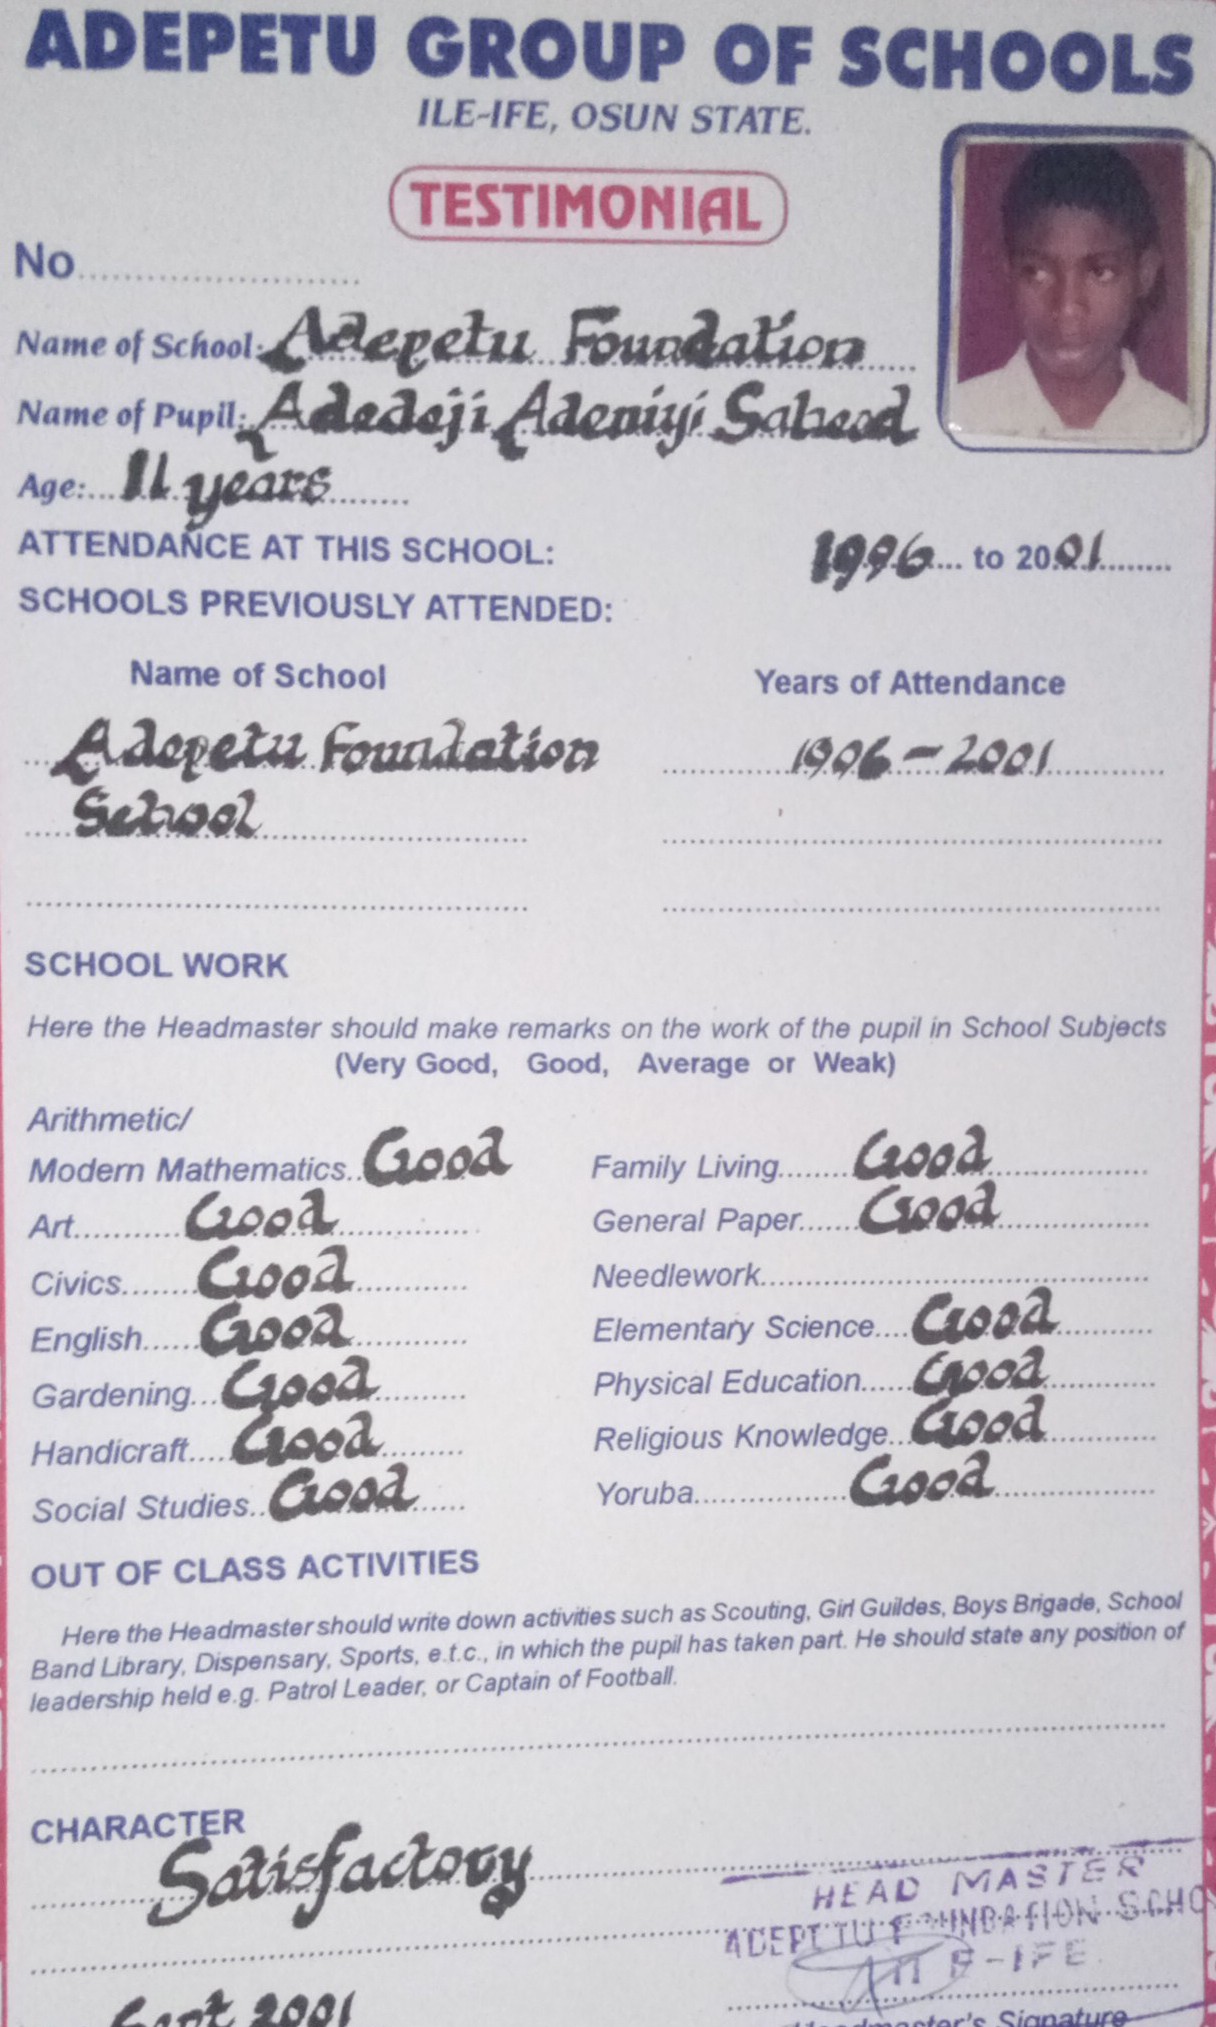 ADEPETU GROUP OF SCHOOLS
ILE-IFE, OSUN STATE.
TESTIMONIAL
No
Name of School: Adepetu Foundation
Name of Pupil: Adedeji Adeniyi Saheed
Age: 11 years
ATTENDANCE AT THIS SCHOOL: 1996 to 2001
SCHOOLS PREVIOUSLY ATTENDED:
Name of School Years of Attendance
Adepetu Foundation 1996 - 2001
School
SCHOOL WORK
Here the Headmaster should make remarks on the work of the pupil in School Subjects
(Very Good, Good, Average or Weak)
Arithmetic/
Modern Mathematics Good Family Living Good
Art Good General Paper Good
Civics Good Needlework
English Good Elementary Science Good
Gardening Good Physical Education Good
Handicraft Good Religious Knowledge Good
Social Studies Good Yoruba Good
OUT OF CLASS ACTIVITIES
Here the Headmaster should write down activities such as Scouting, Girl Guildes, Boys Brigade, School
Band Library, Dispensary, Sports, e.t.c., in which the pupil has taken part. He should state any position of
leadership held e.g. Patrol Leader, or Captain of Football.
CHARACTER
Satisfactory
HEAD MASTER
ADEPETU FOUNDATION SCHO
-IFE
Sept 2001
Headmaster's Signature